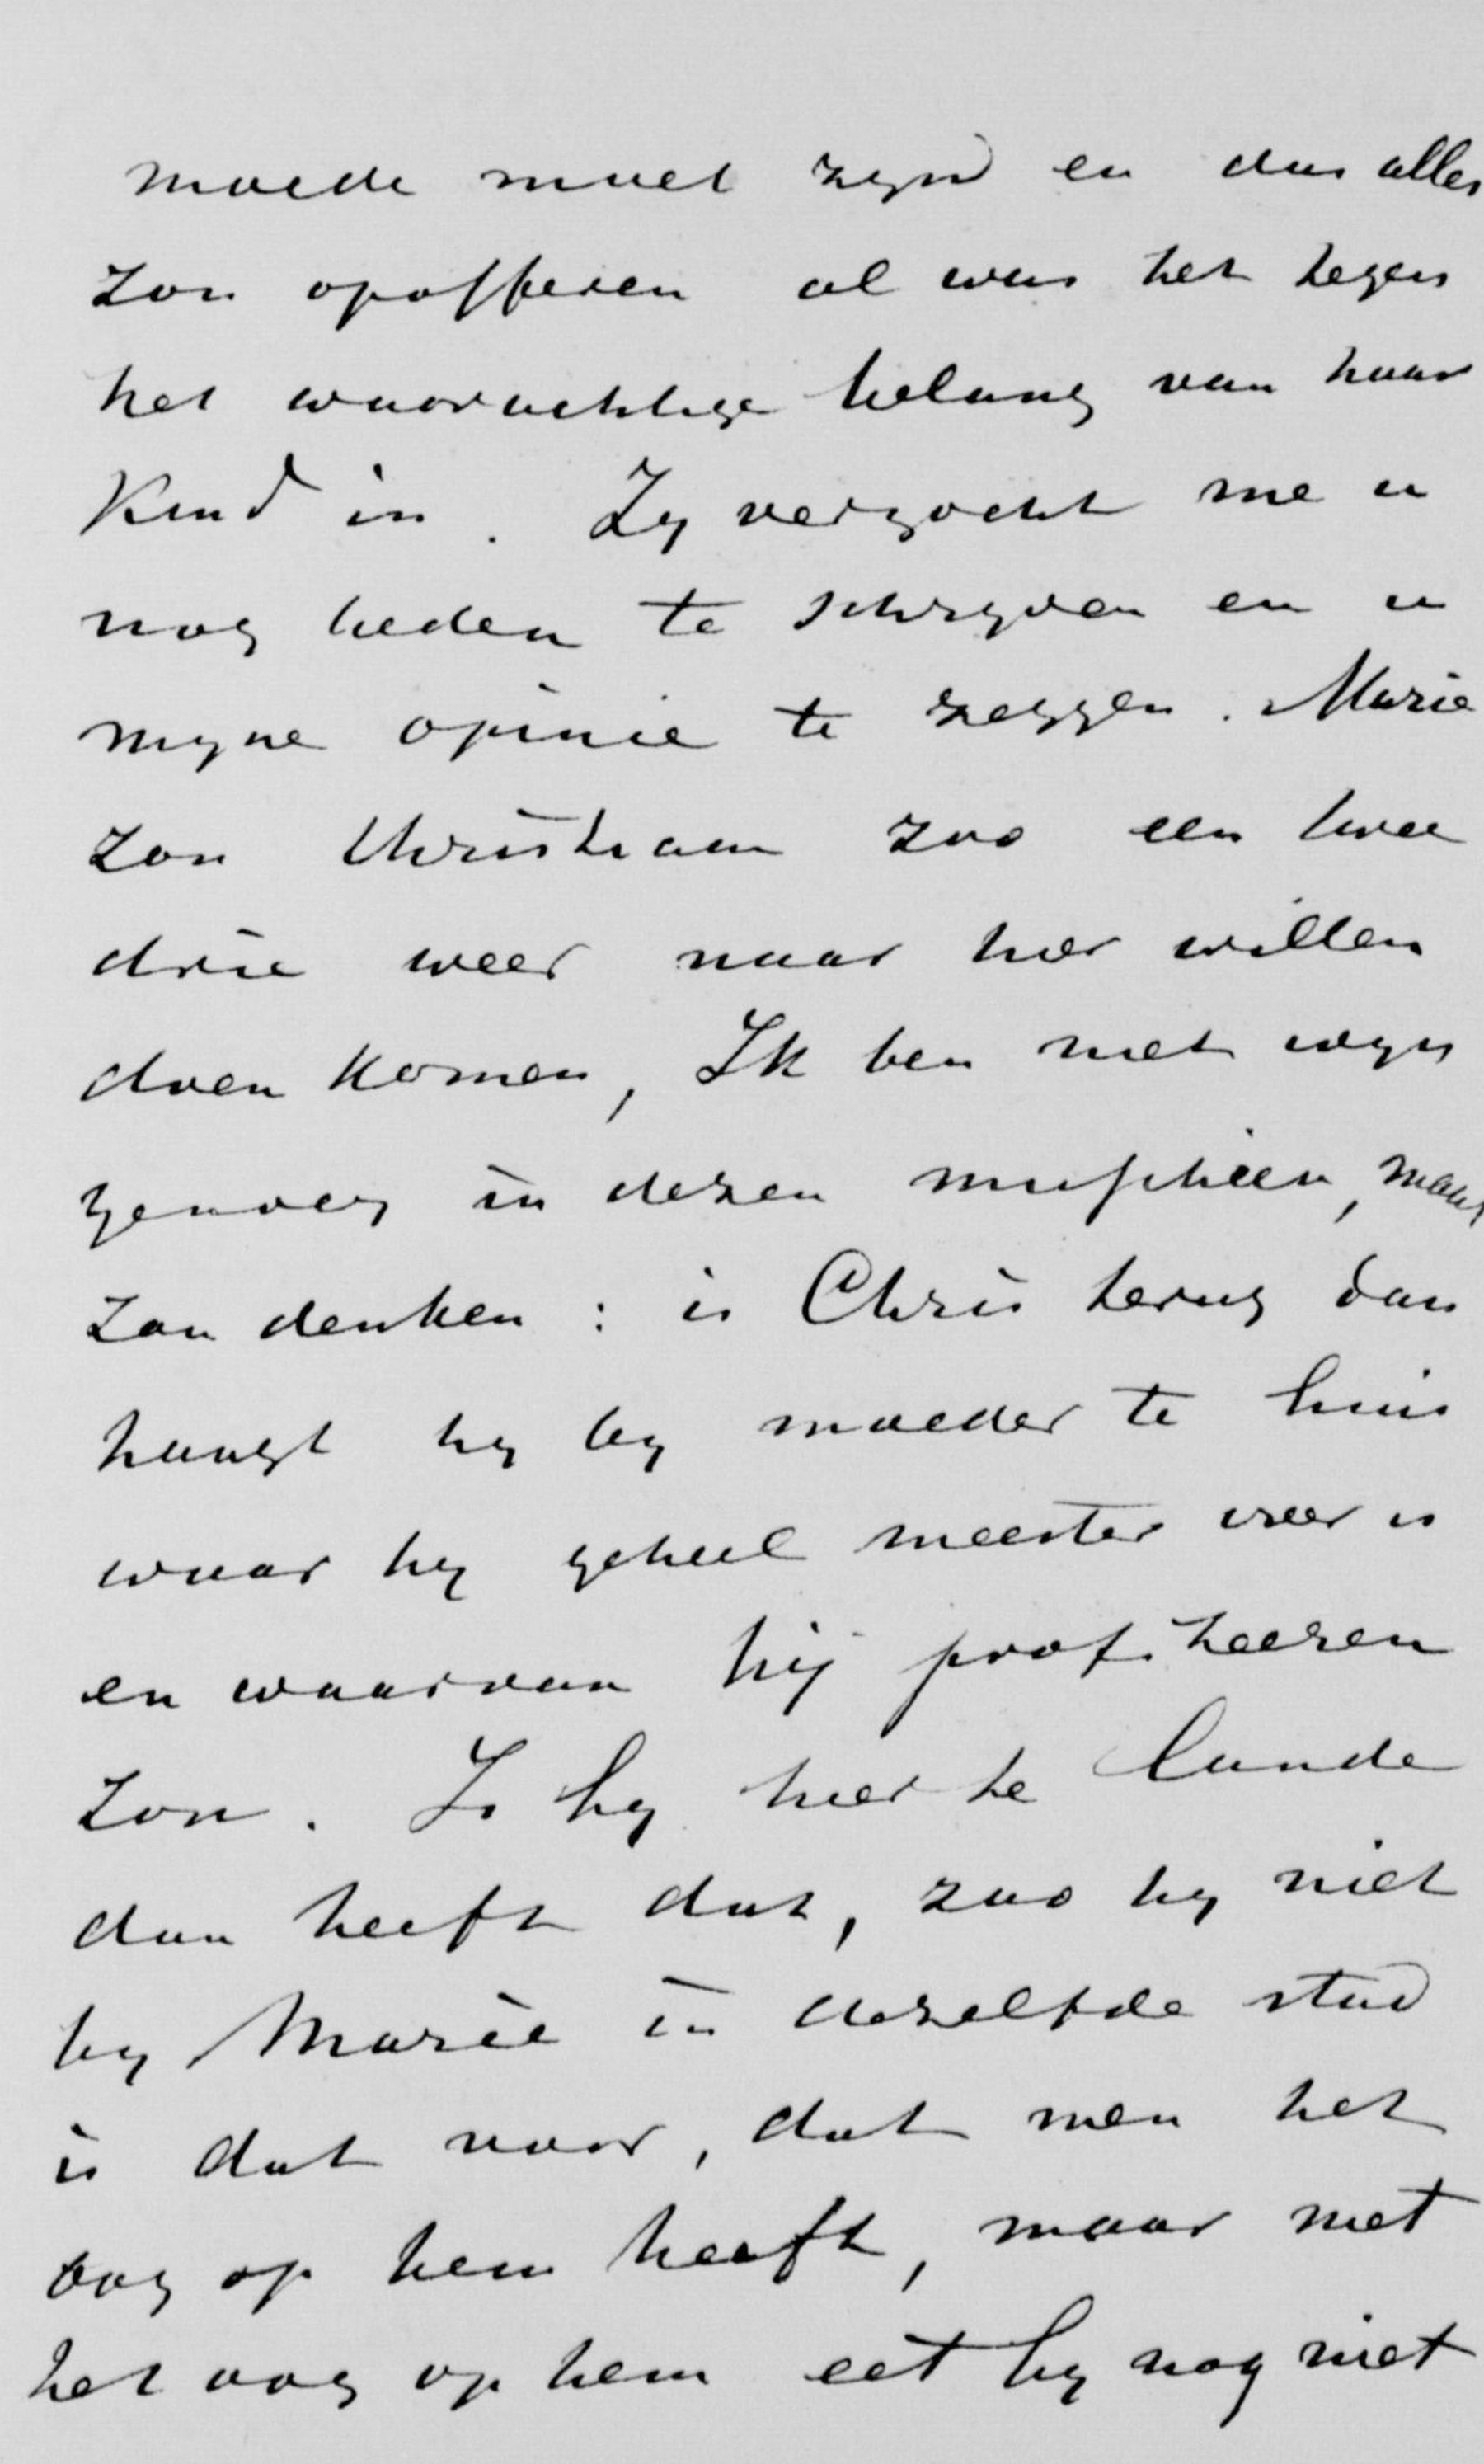 moede moet zyn en dus alles
zou opofferen al was het tegen
het waarachtige belang van haar
Kind in. Zy verzocht me u
nog heden te schryven en u
myne opinie te zeggen. Marie
zou Christiaan zoo een twee
drie weer naar hier willen
doen komen, Ik ben niet wys
genoeg in dezen misschien, maar
zou denken: is Chris terug dan
hangt hy by moeder te huis
waar hy geheel meester weer is
en waarvan hij profiteeren
zou. Is hy hier te lande
dan heeft dat, zoo hy niet
by Marie in dezelfde stad
is dat voor, dat men het
oog op hem heeft, maar met
het oog op hem eet hy nog niet